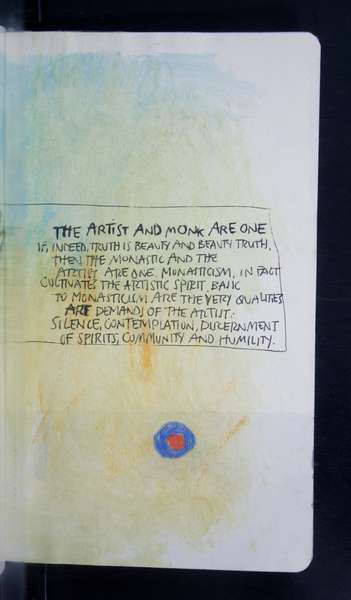 THE ARTIST AND MONK ARE ONE
IF, INDEED, TRUTH IS BEAUTY AND BEAUTY TRUTH,
THEN THE MONASTIC AND THE
ARTIST ARE ONE. MONASTICISM, IN FACT
CULTIVATES THE ARTISTIC SPIRIT. BASIC
TO MONASTICISM ARE THE VERY QUALITIES
ART DEMANDS OF THE ARTIST:
SILENCE, CONTEMPLATION, DISCERNMENT
OF SPIRITS, COMMUNITY AND HUMILITY.